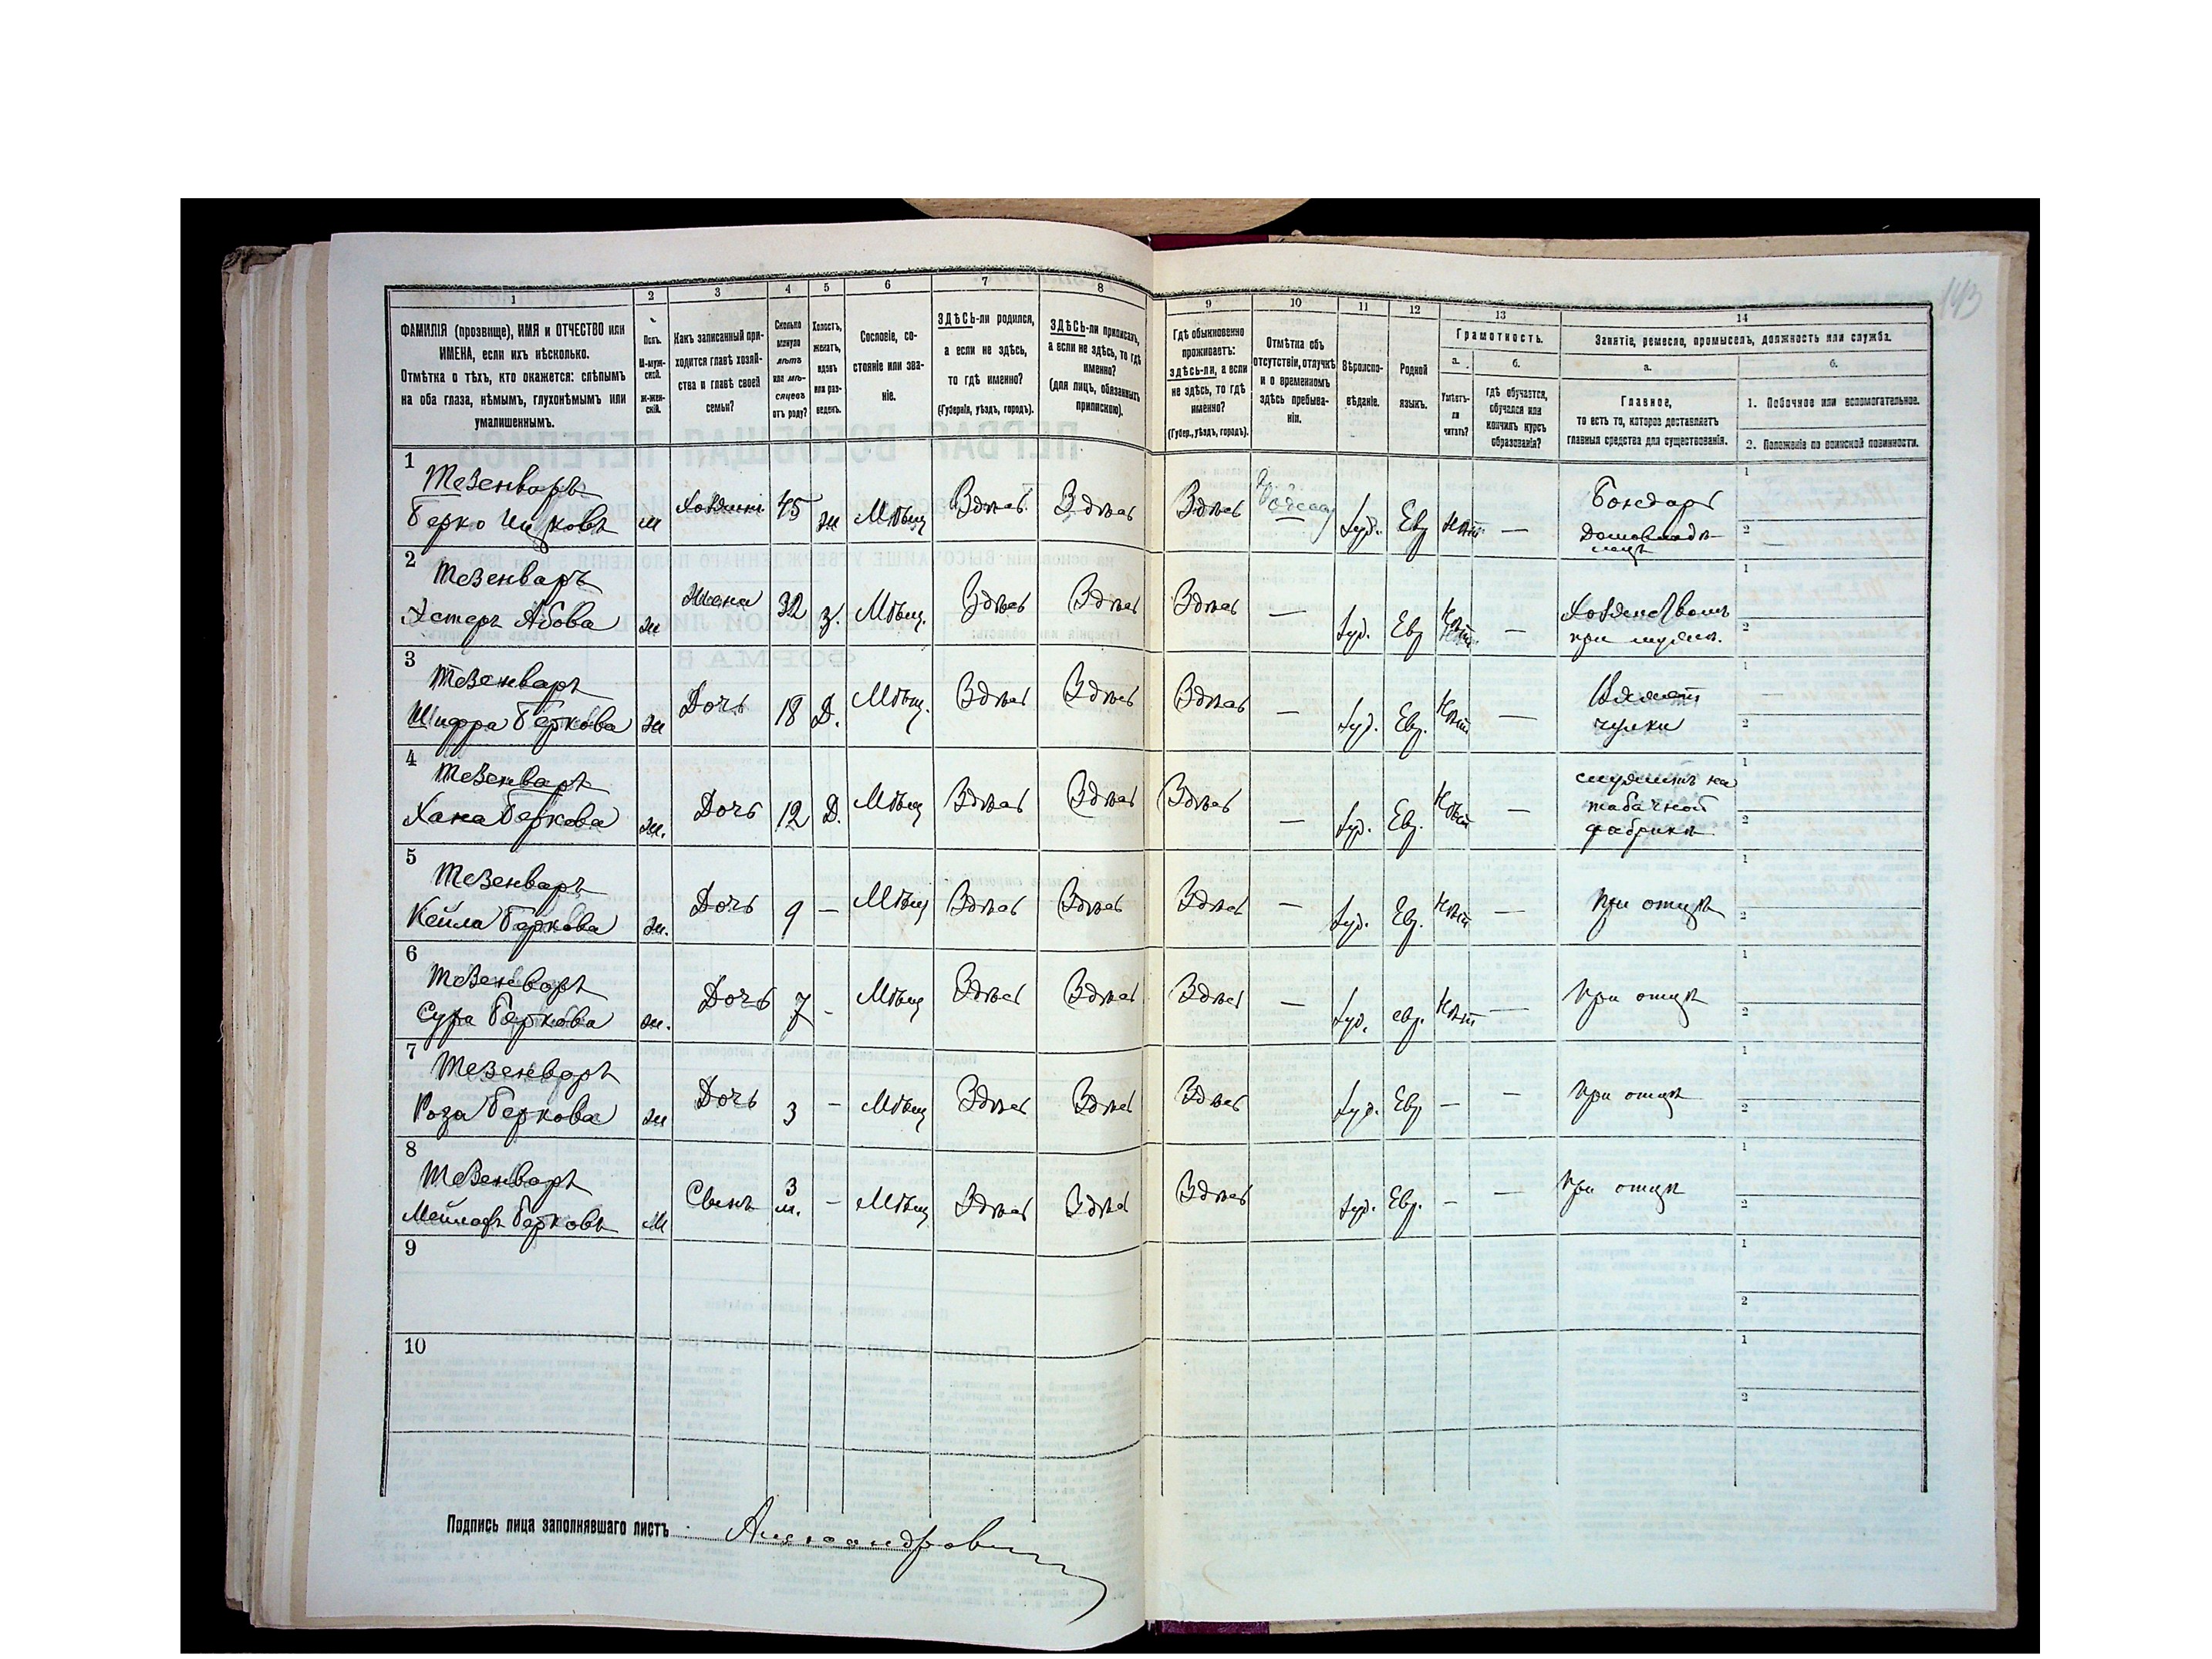 143
1
2
3
4
5
6
7
8
9
10
11
12
13
14
ФАМИЛІЯ (прозвище), ИМЯ и ОТЧЕСТВО или
ИМЕНА, если ихъ нѣсколько.
Отмѣтка о тѣхъ, кто окажется: слѣпымъ
на оба глаза, нѣмымъ, глухонѣмымъ или
умалишеннымъ.
Полъ.
М-муж-
ской.
Ж-жен-
скій.
Какъ записанный при-
ходится главѣ хозяй-
ства и главѣ своей
семьи?
Сколько
минуло
лѣтъ
или мѣ-
сяцевъ
отъ роду?
Холостъ,
женатъ,
вдовъ
или раз-
веденъ.
Сословіе, со-
стояніе или зва-
ніе.
ЗДѢСЬ-ли родился,
а если не здѣсь,
то гдѣ именно?
(Губернія, уѣздъ, городъ).
ЗДѢСЬ-ли приписанъ,
а если не здѣсь, то гдѣ
именно?
(для лицъ, обязанныхъ
припискою).
Гдѣ обыкновенно
проживаетъ:
здѣсь-ли, а если
не здѣсь, то гдѣ
именно?
(Губер., уѣздъ, городъ).
Отмѣтка объ
отсутствіи, отлучкѣ
и о временномъ
здѣсь пребыва-
ніи.
Вѣроиспо-
вѣданіе.
Родной
языкъ.
Грамотность.
а.
Умѣетъ-
ли
читать?
б.
гдѣ обучается,
обучался или
кончилъ курсъ
образованія?
Занятіе, ремесло, промыселъ, должность или служба.
а.
Главное,
то есть то, которое доставляетъ
главныя средства для существованія.
б.
1. Побочное или вспомогательное.
2. Положеніе по воинской повинности.
1
Тезенваръ
Берко Ицковъ м Хозяинъ 45 ж Мѣщ Здѣсь Здѣсь Здѣсь — Іуд. Евр нѣтъ — Бондарь
Домовладѣ-
лецъ
1
2
2
Тезенваръ
Хстеръ Абова ж Жена 32 з. Мѣщ. Здѣсь Здѣсь Здѣсь — Іуд. Евр Нѣтъ — Хозяйствомъ
при мужѣ.
1
2
3
Тезенваръ
Шифра Беркова ж Дочь 18 Д. Мѣщ. Здѣсь Здѣсь Здѣсь — Іуд. Евр. Нѣтъ — Вяжетъ
чулки
1
2
4
Тезенваръ
Хана Беркова ж. Дочь 12 Д. Мѣщ Здѣсь Здѣсь Здѣсь — Іуд. Евр. Нѣтъ — служитъ на
табачной
фабрикѣ
1
2
5
Тезенваръ
Кейла Беркова ж. Дочь 9 — Мѣщ Здѣсь Здѣсь Здѣсь — Іуд. Евр. Нѣтъ — При отцѣ
1
2
6
Тезенваръ
Сура Беркова ж. Дочь 7 - Мѣщ Здѣсь Здѣсь Здѣсь — Іуд. евр. Нѣтъ — При отцѣ
1
2
7
Тезенваръ
Роза Беркова ж Дочь 3 — Мѣщ Здѣсь Здѣсь Здѣсь Іуд. Евр — — При отцѣ
1
2
8
Тезенваръ
Берковъ М Сынъ 3 м. — Мѣщ Здѣсь Здѣсь Здѣсь Іуд. Евр. — — При отцѣ
1
2
9
1
2
10
1
2
Подпись лица заполнявшаго листъ